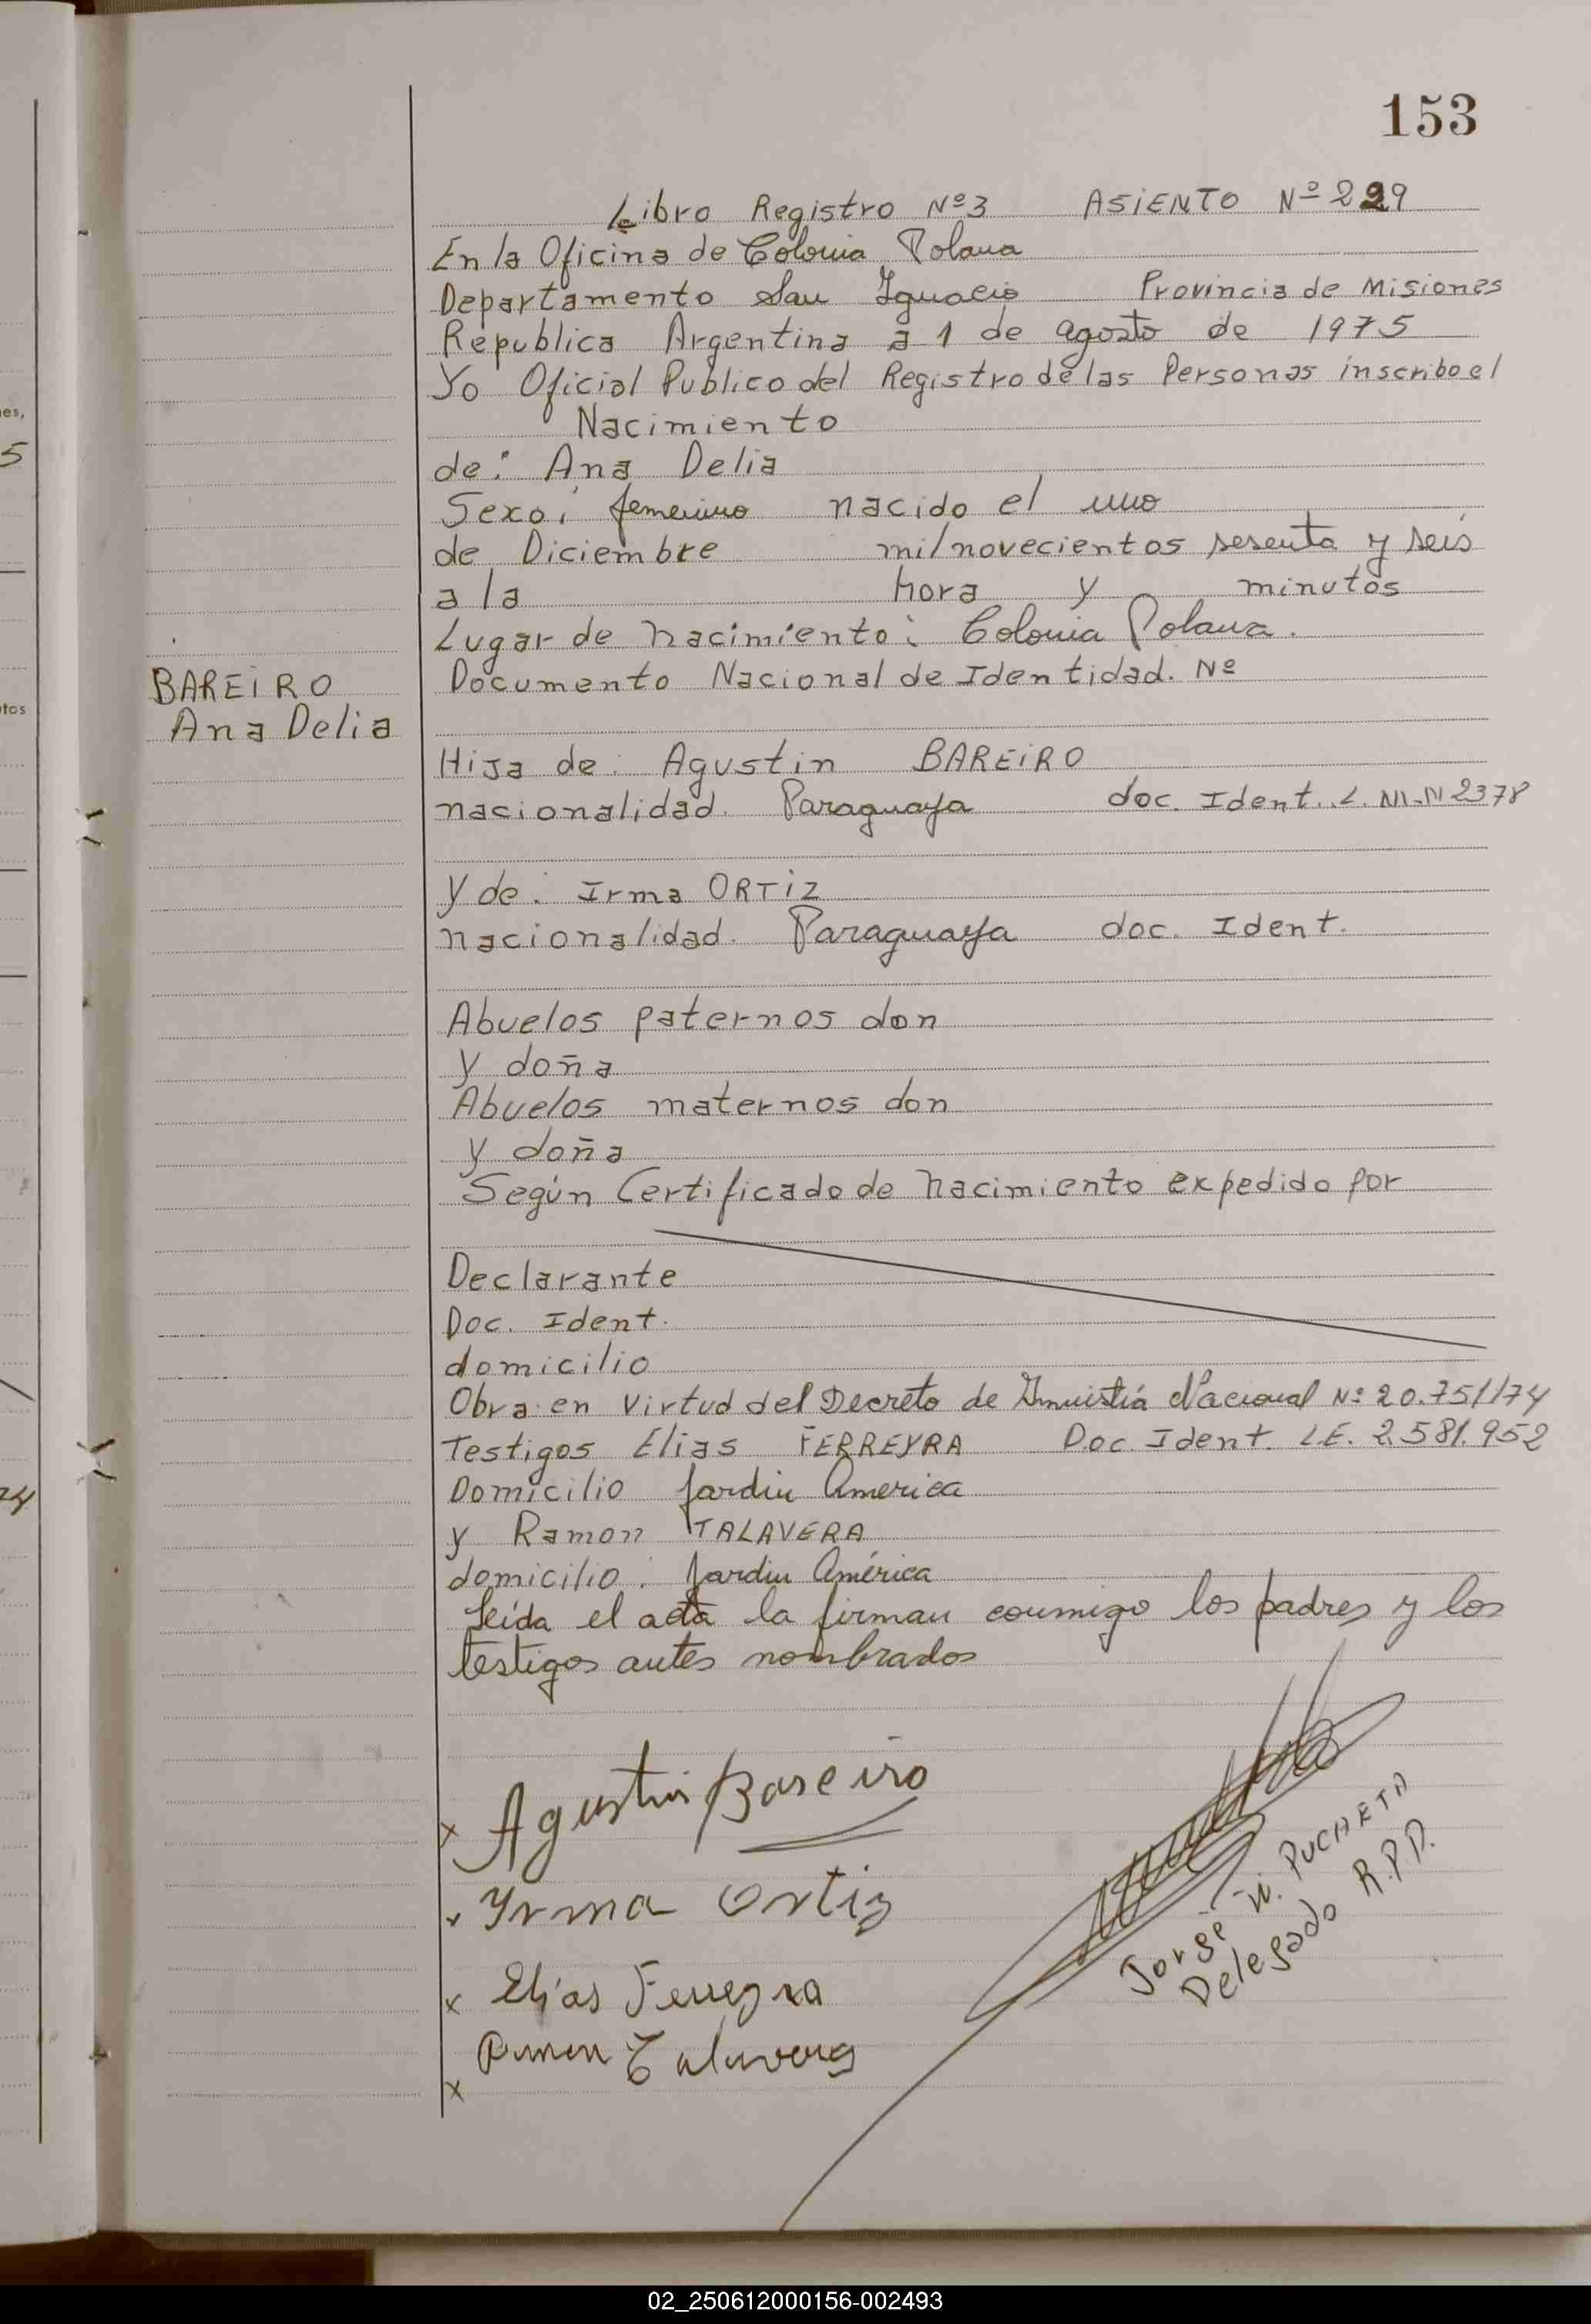 153
Libro Registro Nº3 ASIENTO Nº 229
En la Oficina de Colonia Polana
Departamento San Ignacio Provincia de Misiones
Republica Argentina a 1 de agosto de 1975
Yo Oficial Publico del Registro de las Personas inscribo el
Nacimiento
de: Ana Delia
Sexo: femenino nacido el uno
de Diciembre mil novecientos sesenta y seis
a la hora y minutos
Lugar de nacimiento: Colonia Polana.
BAREIRO
Ana Delia
Documento Nacional de Identidad. Nº
Hija de: Agustin BAREIRO
nacionalidad. Paraguaya doc. Ident. 2378
y de: Irma ORTIZ
nacionalidad. Paraguaya doc. Ident.
Abuelos paternos don
y doña
Abuelos maternos don
y doña
Según Certificado de nacimiento expedido por
Declarante
Doc. Ident.
domicilio
Obra en Virtud del Decreto de Amnistiá Nacional Nº 20.751/74
Testigos Elias FERREYRA Doc. Ident. L.E. 2.581.952
Domicilio Jardin America
y Ramon TALAVERA
domicilio: Jardin América
Leída el acta la firman conmigo los padres y los
testigos antes nombrados
x Agustin Bareiro
x Yrma Ortiz
x Elias Ferreyra
x Ramon Talavera
Jorge W. PUCHETA
Delegado R.P.P.
es,
5
tos
74
02_250612000156-002493